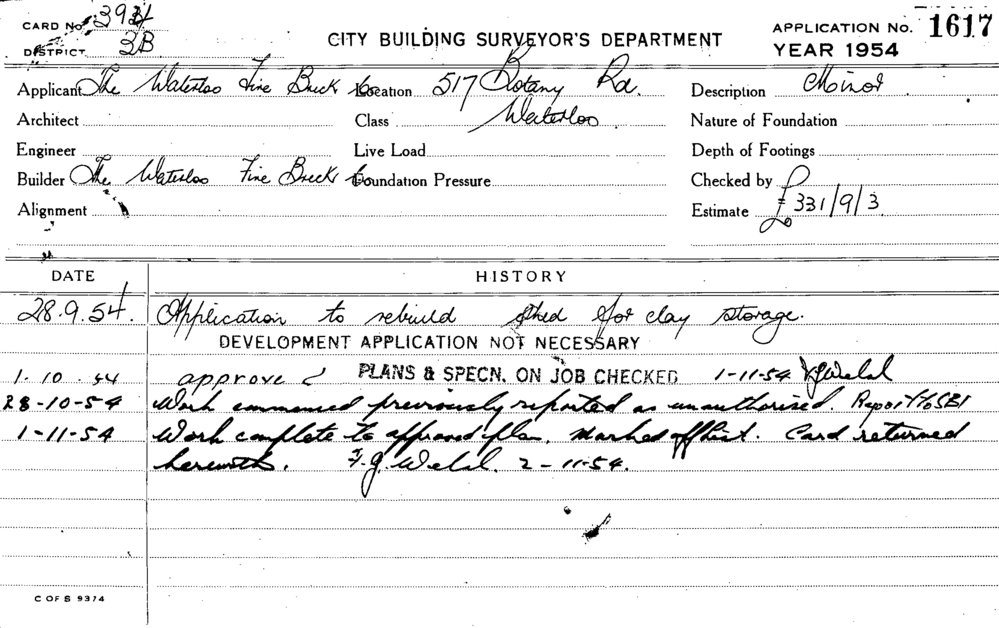 CARD No. 3934
DISTRICT 3B
CITY BUILDING SURVEYOR'S DEPARTMENT
APPLICATION No. 1617
YEAR 1954
Applicant The Waterloo Fire Brick Co Location 517 Botany Rd. Description Minor
Architect Class Waterloo Nature of Foundation
Engineer Live Load Depth of Footings
Builder The Waterloo Fire Brick Co Foundation Pressure Checked by
Alignment Estimate £331/9/3
DATE HISTORY
28.9.54. Application to rebuild shed for clay storage.
DEVELOPMENT APPLICATION NOT NECESSARY
1.10.54 approved PLANS & SPECN. ON JOB CHECKED 1-11-54
28-10-54 Work commenced previously reported as unauthorised. Report to CBI
1-11-54 Work complete to approved plan. Marked off list. Card returned
herewith. 2-11-54.
C OF S 9374